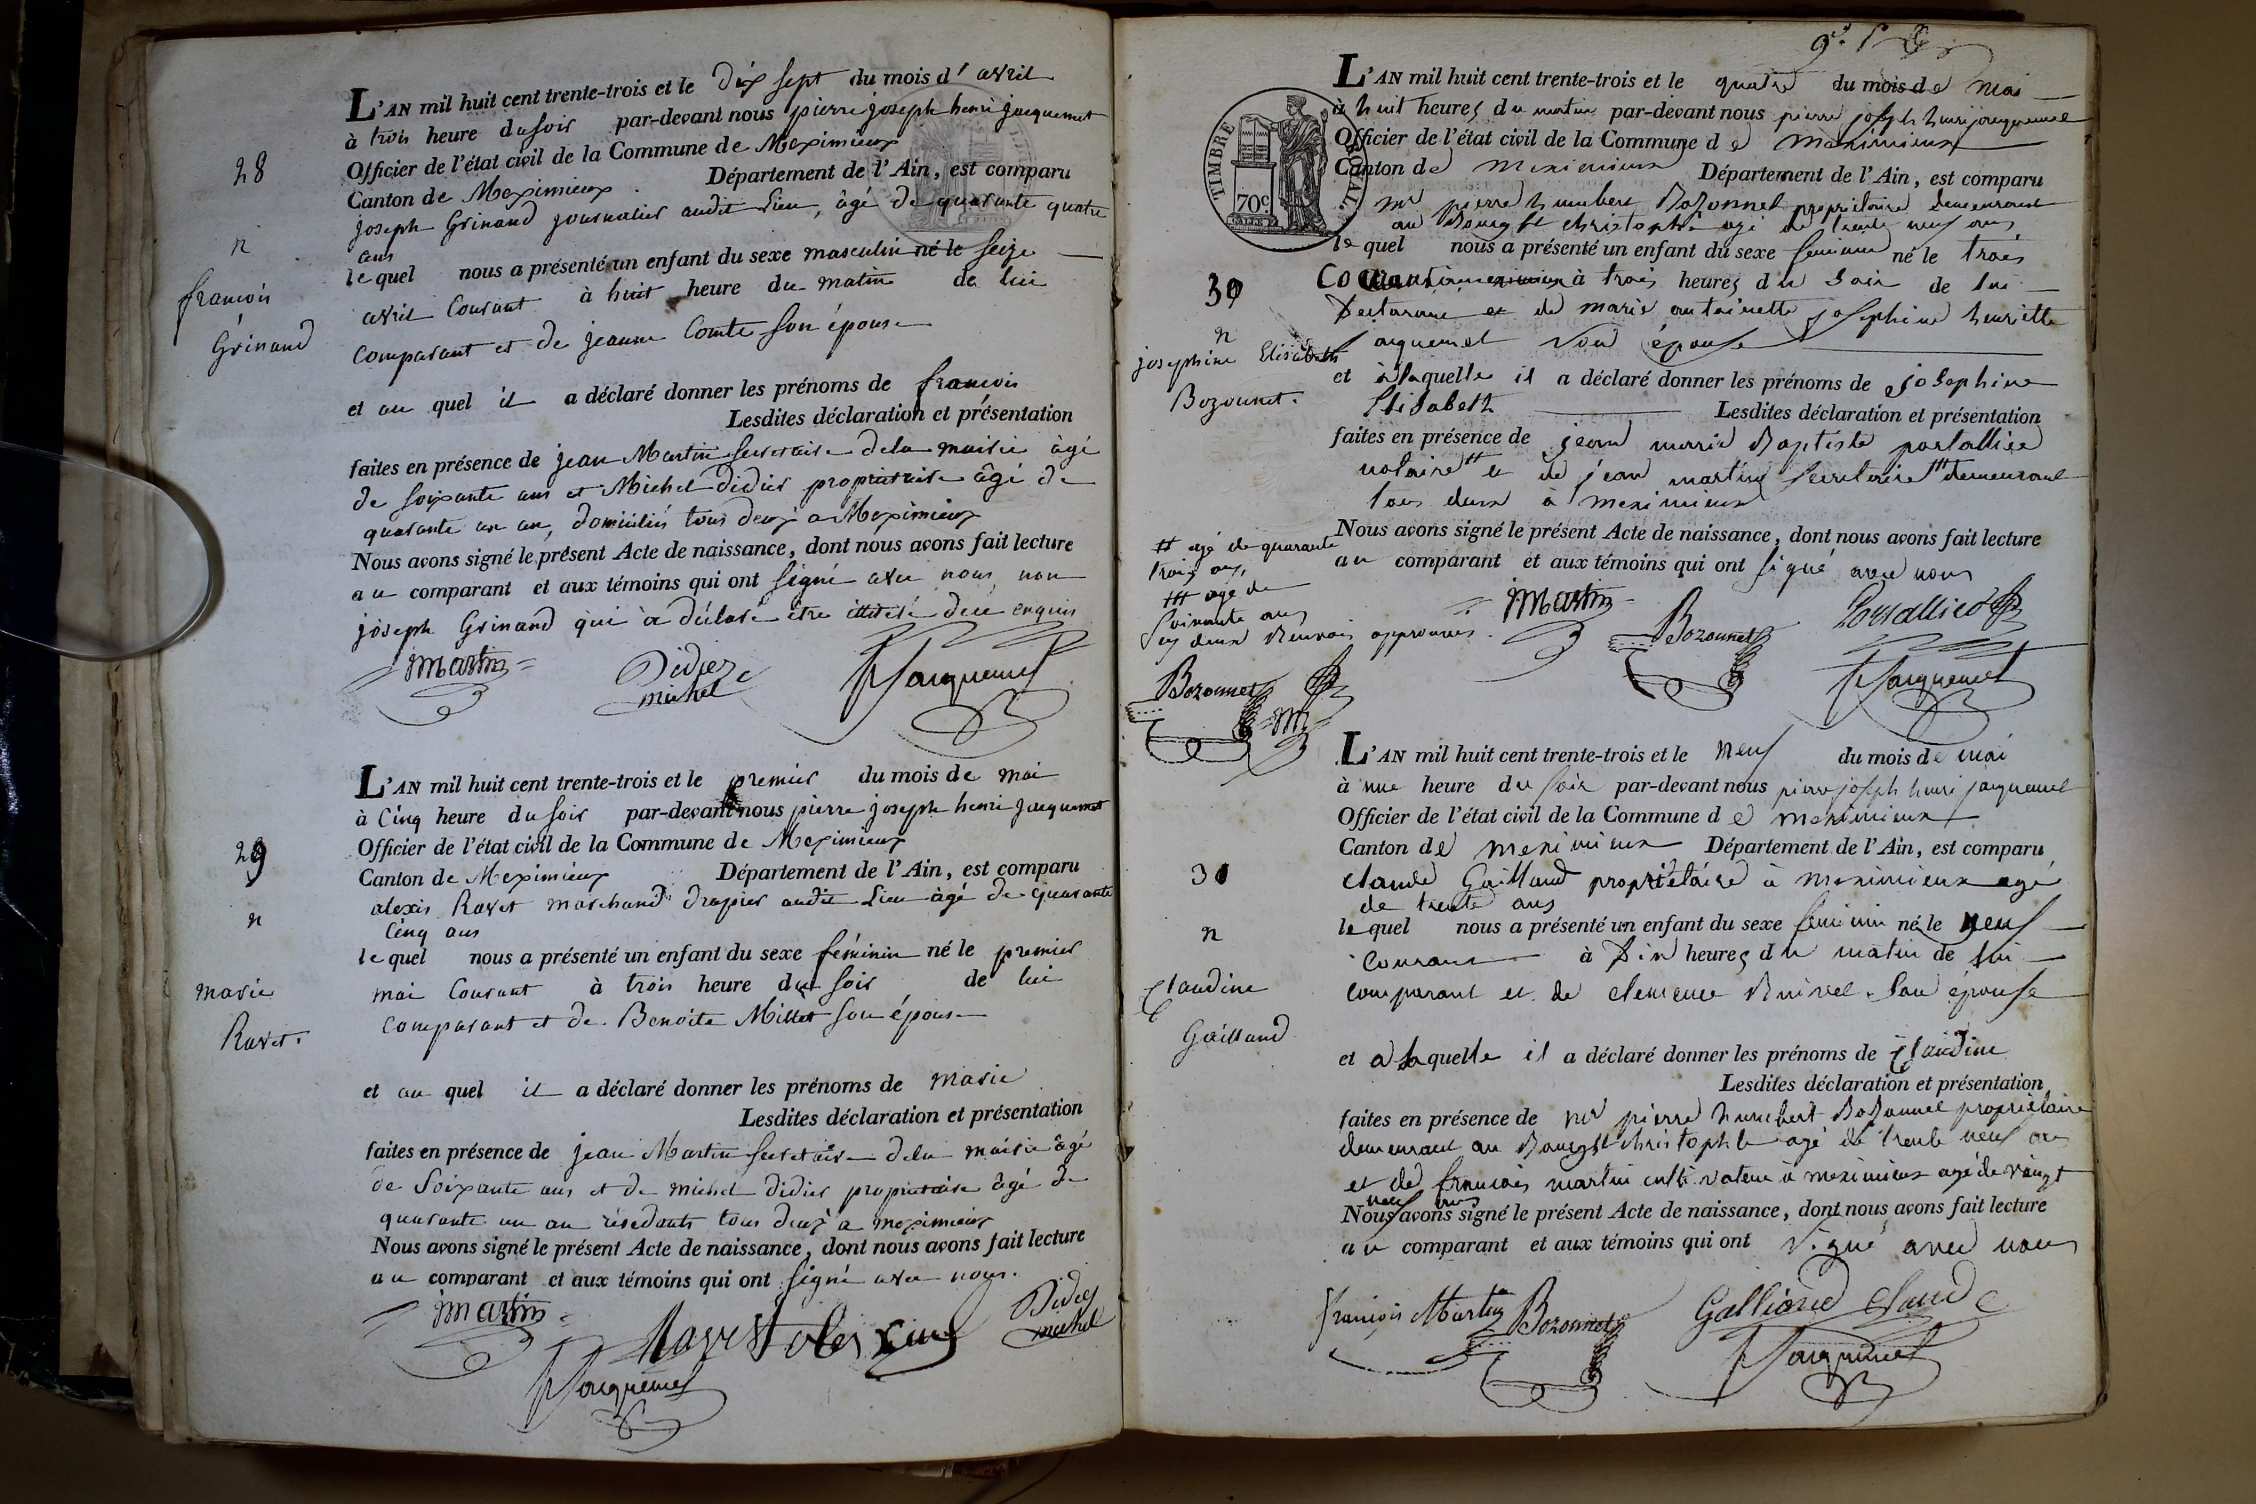 L'AN mil huit cent trente-trois et le dix sept du mois d'avril
à trois heure du soir par-devant nous pierre joseph henri jacquemet
Officier de l'état civil de la Commune de Meximieux
28
Canton de Meximieux Département de l'Ain, est comparu
joseph Grinand journalier audit Lieu, âgé de quarante quatre
ans
n
le quel nous a présenté un enfant du sexe masculin né le seize
francois
avril Courant à huit heure du matin de lui
Grinand
comparant et de jeanne Comte son épouse
et au quel il a déclaré donner les prénoms de francois
Lesdites déclaration et présentation
faites en présence de jean Martin secretaire dela mairie âgé
de soixante ans et Michel Didier propriétaire âgé de
quarante un an, domiciliés tous deux a Meximieux
Nous avons signé le présent Acte de naissance, dont nous avons fait lecture
au comparant et aux témoins qui ont signé avec nous non
joseph Grinand qui à déclaré être illitéré de ce enquis
Martin Didier michel Jacquemet
L'AN mil huit cent trente-trois et le premier du mois de mai
à Cinq heure du soir par-devant nous pierre joseph henri jacquemet
Officier de l'état civil de la Commune de Meximieux
29
Canton de Meximieux Département de l'Ain, est comparu
alexis Ravet marchand drapier audit Lieu âgé de quarante
Cinq ans
n
le quel nous a présenté un enfant du sexe féminin né le premier
marie
mai Courant à trois heure du soir de lui
Ravet.
comparant et de Benoite Millet son épouse
et au quel il a déclaré donner les prénoms de marie
Lesdites déclaration et présentation
faites en présence de jean Martin secretaire dela mairie âgé
de soixante ans et de michel didier propriétaire âgé de
quarante un an résedants tous deux a meximieux
Nous avons signé le présent Acte de naissance, dont nous avons fait lecture
au comparant et aux témoins qui ont signé avec nous.
Martin Ravet alexis Didier michel
Jacquemet
L'AN mil huit cent trente-trois et le quatre du mois de Mai
à huit heures du matin par-devant nous pierre joseph henri jacquemet
Officier de l'état civil de la Commune de meximieux
Canton de meximieux Département de l'Ain, est comparu
TIMBRE ROYAL
70c
mr pierre humbert Bozonnet propriétaire demeurant
au Bourg St christophe agé de trente neuf ans
le quel nous a présenté un enfant du sexe feminin né le trois
30
Courant à trois heures du soir de lui
Declarant et de marie antoinette josephine henriette
n
jacquemet son épouse
josephine Elisabeth
Bozonnet.
et à laquelle il a déclaré donner les prénoms de josephine
Elisabeth Lesdites déclaration et présentation
faites en présence de jean marie Baptiste portallier
notaire # et de jean martin secretaire ## demeurant
tous deux à meximieux
Nous avons signé le présent Acte de naissance, dont nous avons fait lecture
au comparant et aux témoins qui ont signé avec nous
# agé de quarante
trois ans
## agé de
Soixante ans
ces deux Renvois approuvés.
Martin Bozonnet Portallier
Jacquemet
Bozonnet M
L'AN mil huit cent trente-trois et le neuf du mois de mai
à une heure du soir par-devant nous pierre joseph henri jacquemet
Officier de l'état civil de la Commune de meximieux
Canton de meximieux Département de l'Ain, est comparu
31
claude Gailland propriétaire à meximieux agé
de trente ans
n
le quel nous a présenté un enfant du sexe feminin né le neuf
courant à dix heures du matin de lui
claudine
Gailland
comparant et de clemence son épouse
et a laquelle il a déclaré donner les prénoms de claudine
Lesdites déclaration et présentation
faites en présence de mr pierre humbert Bozonnet propriétaire
demeurant au Bourg St christophe agé de trente neuf ans
et de francois martin cultivateur à meximieux agé de vingt
neuf ans
Nous avons signé le présent Acte de naissance, dont nous avons fait lecture
au comparant et aux témoins qui ont signé avec nous
françois Martin Bozonnet Galliand Claude
Jacquemet